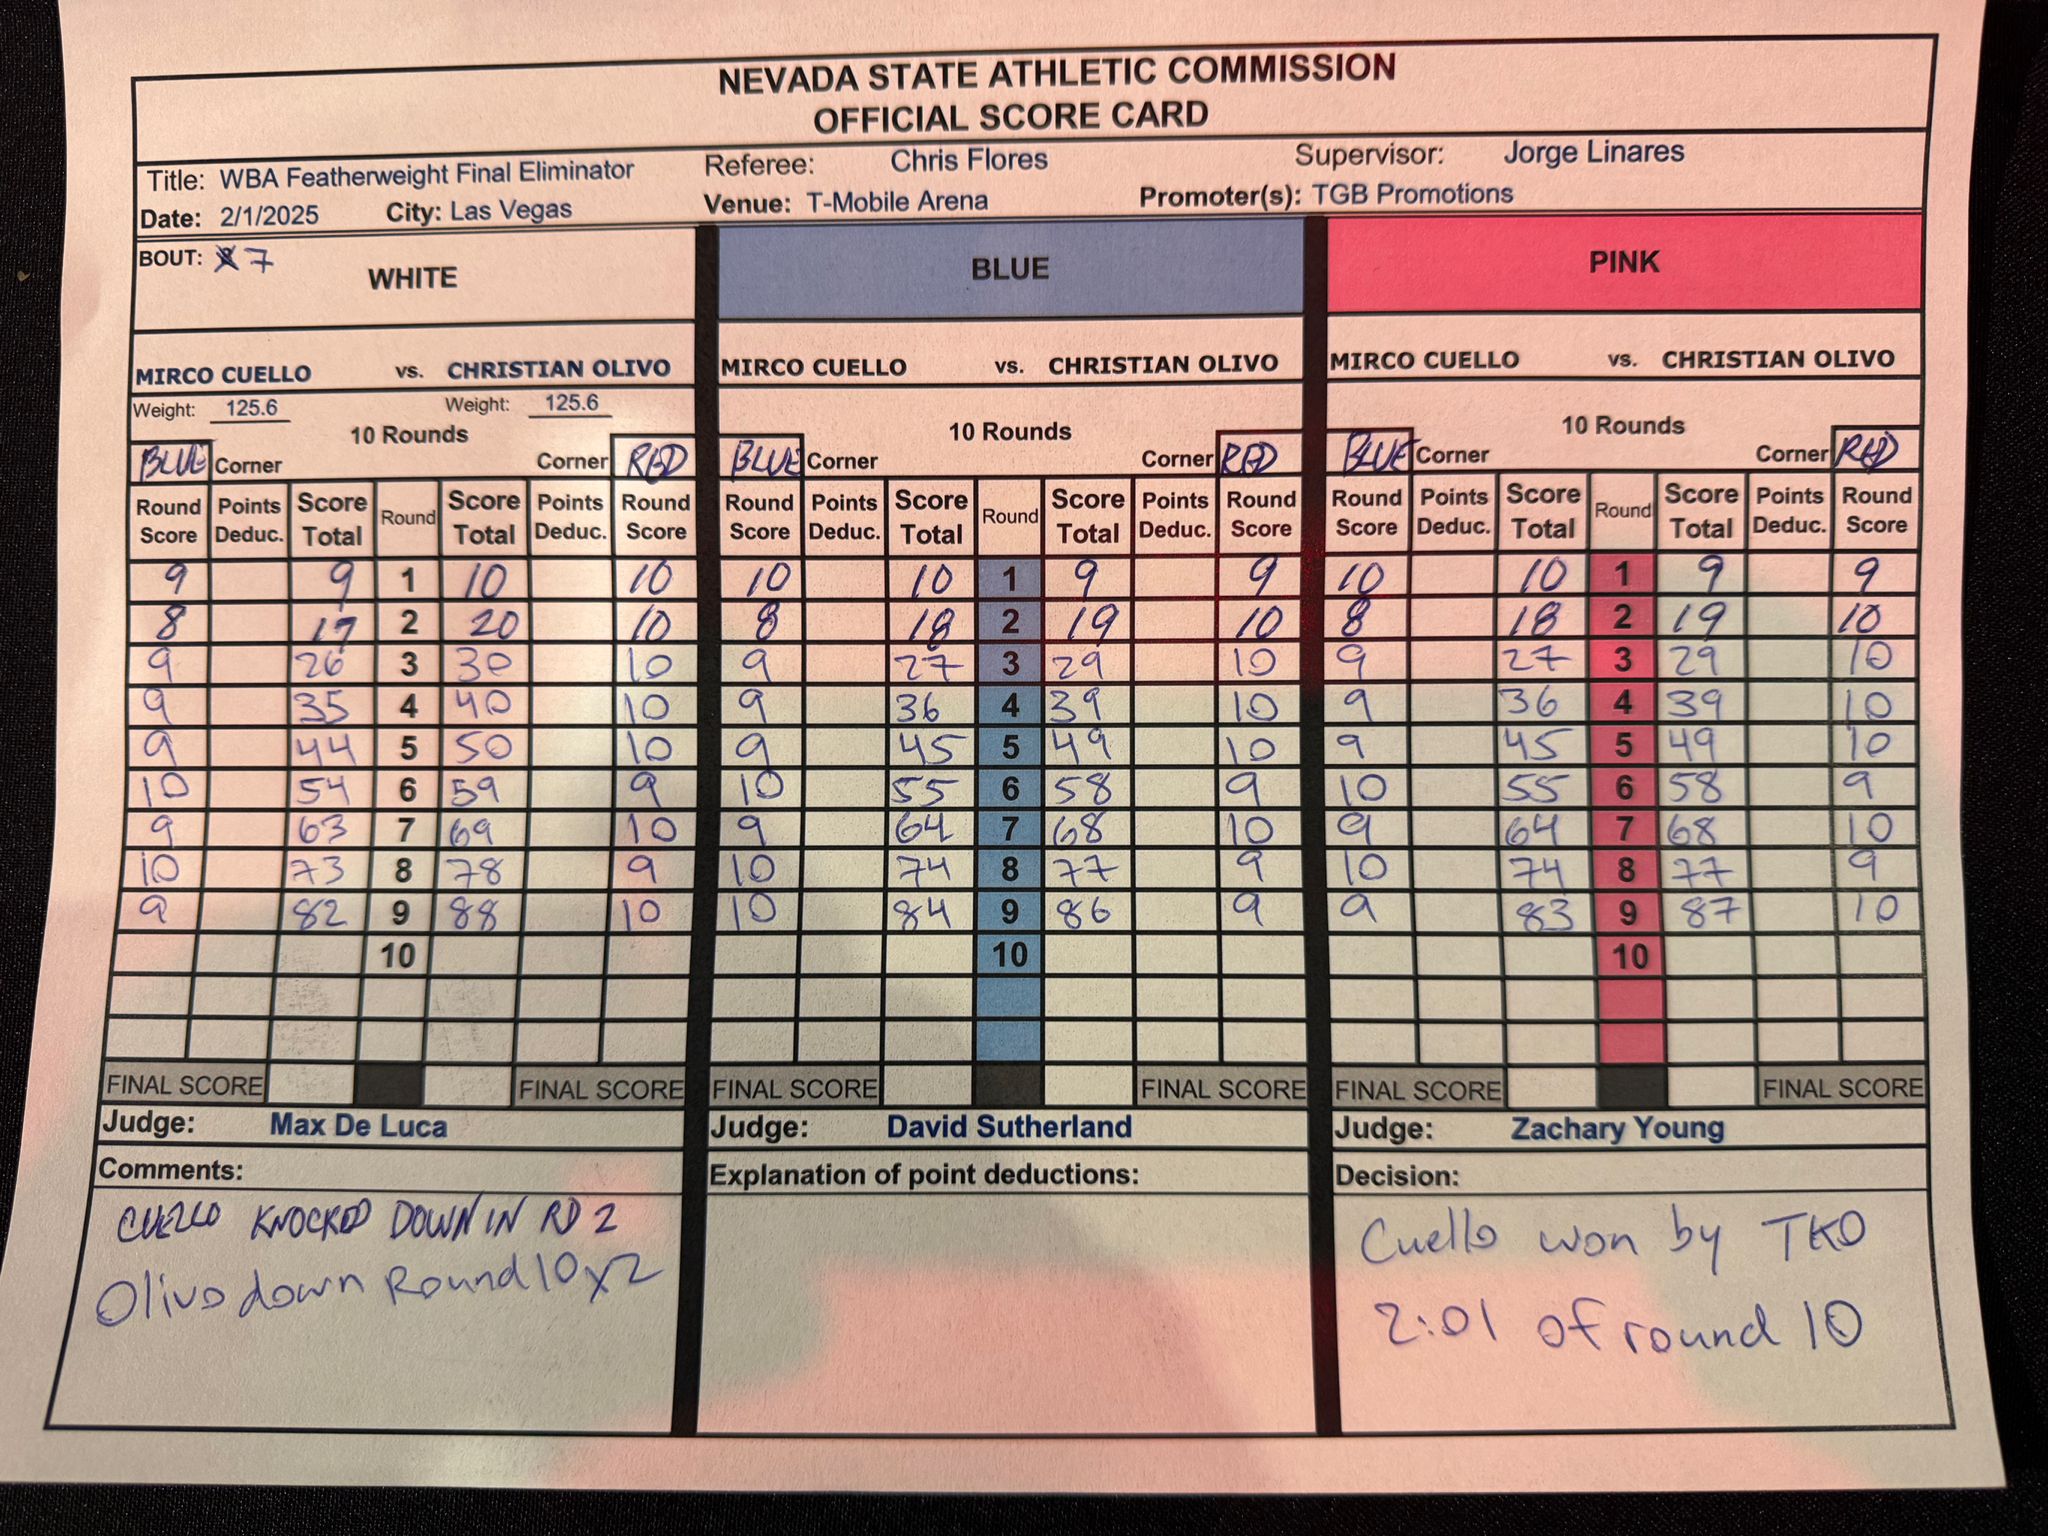 NEVADA STATE ATHLETIC COMMISSION
OFFICIAL SCORE CARD
Title: WBA Featherweight Final Eliminator Referee: Chris Flores Supervisor: Jorge Linares
Date: 2/1/2025 City: Las Vegas Venue: T-Mobile Arena Promoter(s): TGB Promotions
BOUT: 7
WHITE BLUE PINK
MIRCO CUELLO vs. CHRISTIAN OLIVO MIRCO CUELLO vs. CHRISTIAN OLIVO MIRCO CUELLO vs. CHRISTIAN OLIVO
Weight: 125.6 Weight: 125.6
10 Rounds 10 Rounds 10 Rounds
BLUE Corner Corner RED BLUE Corner Corner RED BLUE Corner Corner RED
Round Points Score Round Score Points Round Round Points Score Round Score Points Round Round Points Score Round Score Points Round
Score Deduc. Total Total Deduc. Score Score Deduc. Total Total Deduc. Score Score Deduc. Total Total Deduc. Score
9 9 1 10 10 10 10 1 9 9 10 10 1 9 9
8 17 2 20 10 8 18 2 19 10 8 18 2 19 10
9 26 3 30 10 9 27 3 29 10 9 27 3 29 10
9 35 4 40 10 9 36 4 39 10 9 36 4 39 10
9 44 5 50 10 9 45 5 49 10 9 45 5 49 10
10 54 6 59 9 10 55 6 58 9 10 55 6 58 9
9 63 7 69 10 9 64 7 68 10 9 64 7 68 10
10 73 8 78 9 10 74 8 77 9 10 74 8 77 9
9 82 9 88 10 10 84 9 86 9 9 83 9 87 10
10 10 10
FINAL SCORE FINAL SCORE FINAL SCORE FINAL SCORE FINAL SCORE FINAL SCORE
Judge: Max De Luca Judge: David Sutherland Judge: Zachary Young
Comments: Explanation of point deductions: Decision:
CUELLO KNOCKED DOWN IN RD 2
Olivo down Round 10 x2
Cuello won by TKO
2:01 of round 10